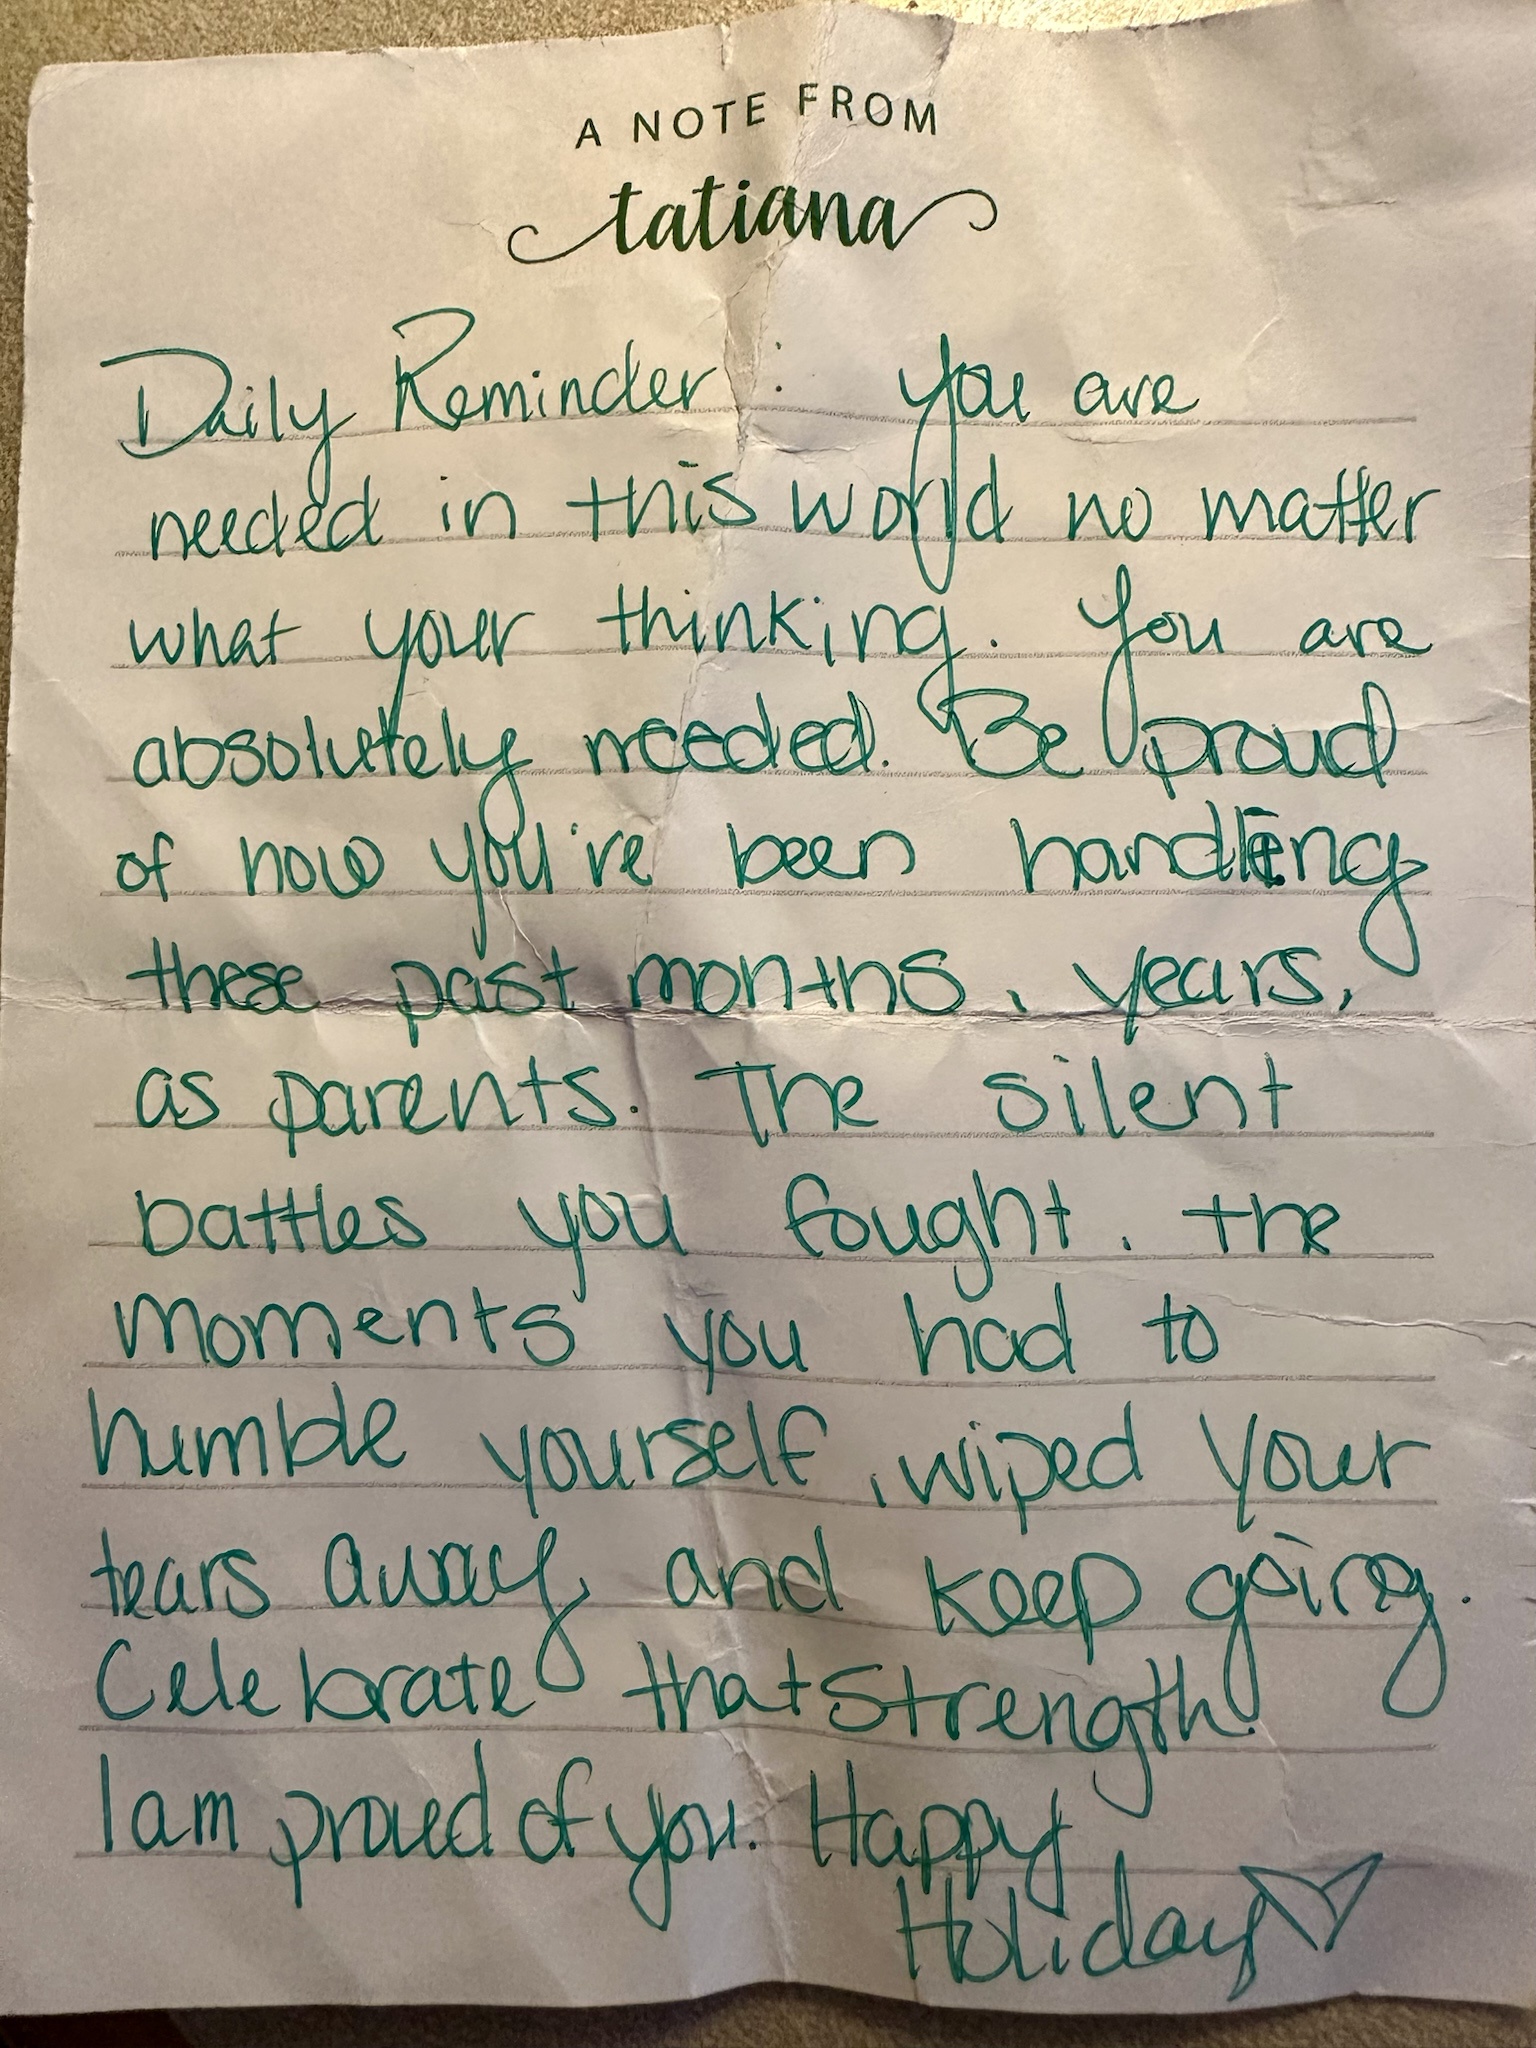 A NOTE FROM
tatiana
Daily Reminder : you are
needed in this world no matter
what your thinking. You are
absolutely needed. Be proud
of how you've been handling
these past months, years,
as parents. The silent
battles you fought, the
moments you had to
humble yourself, wiped your
tears away and keep going.
Celebrate that strength.
I am proud of you. Happy
Holiday